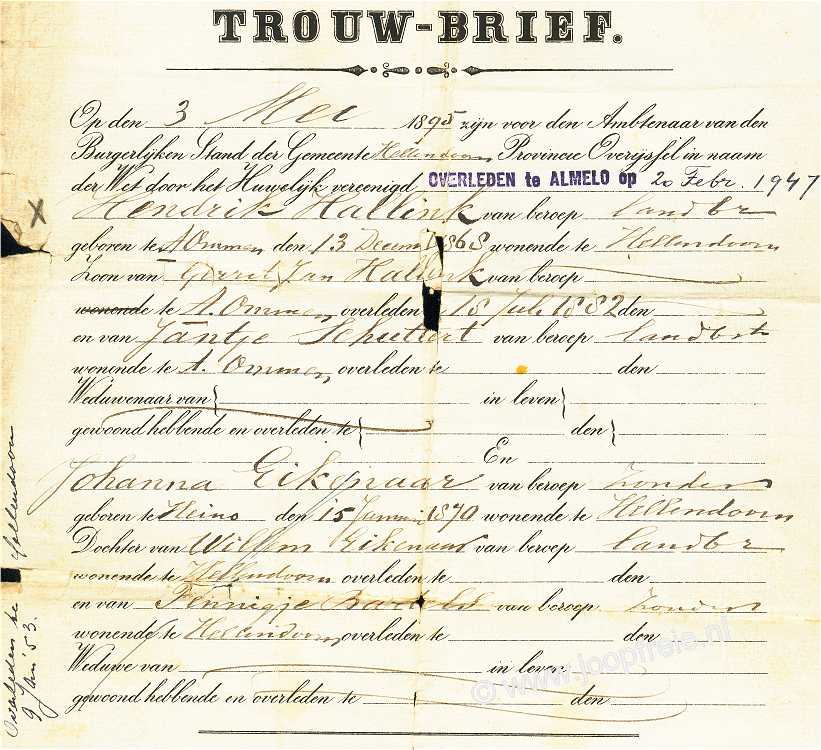 TROUW-BRIEF.
Op den 3 Mei 1895 zijn voor den Ambtenaar van den
Burgerlijken Stand der Gemeente Hellendoorn Provincie Overijssel in naam
der Wet door het Huwelijk vereenigd OVERLEDEN te ALMELO op 20 Febr. 1947
X
Hendrik Hallink van beroep landbr
geboren te A Ommen den 13 Decem 1868 wonende te Hellendoorn
Zoon van Gerrit Jan Hallink van beroep
wonende te A. Ommen overleden 18 Juli 1882 den
en van Jantje Schutert van beroep landbr
wonende te A. Ommen overleden te den
Weduwenaar van in leven
gewoond hebbende en overleden te den
En
Johanna Eikenaar van beroep zonder
geboren te Heino den 15 Januari 1870 wonende te Hellendoorn
Dochter van Willem Eikenaar van beroep landbr
wonende te Hellendoorn overleden te den
en van Pennigje van beroep zonder
wonende te Hellendoorn overleden te den
Weduwe van in leven
gewoond hebbende en overleden te den
Overleden te Hellendoorn
9 Jan '53.
© www.joopfreie.nl